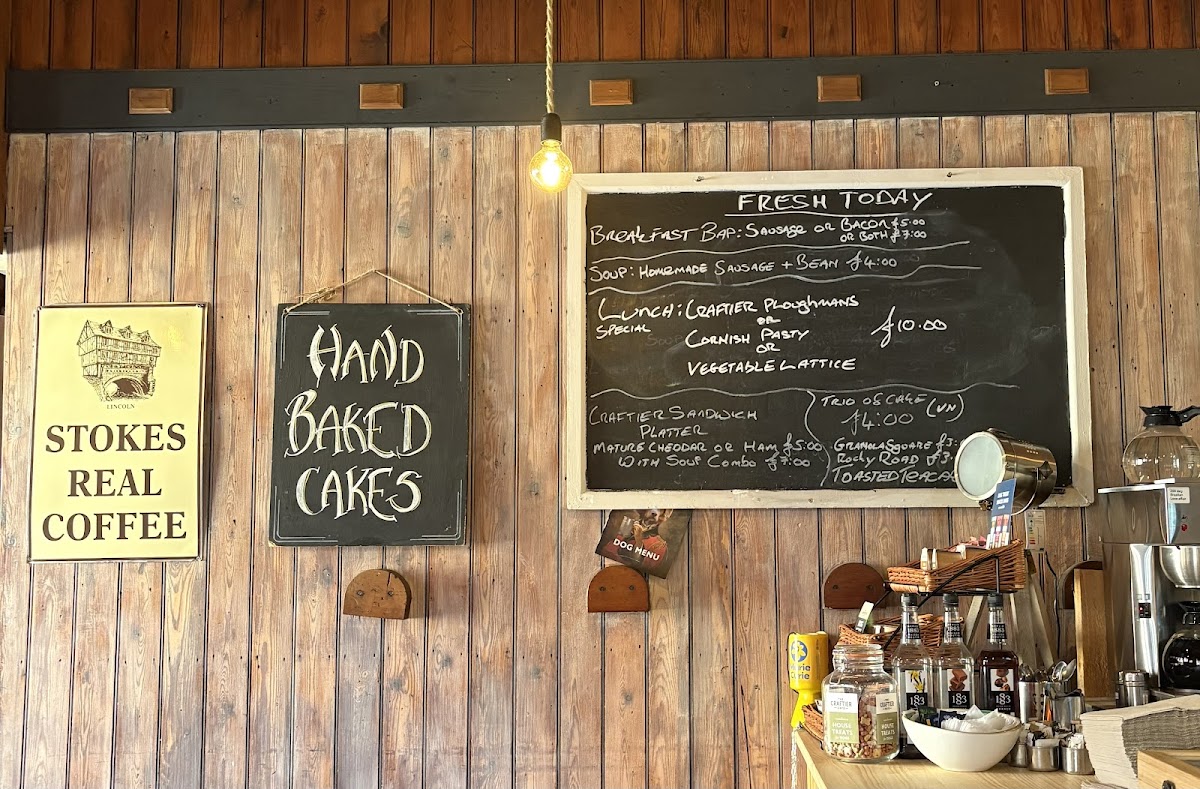 LINCOLN
STOKES
REAL
COFFEE
HAND
BAKED
CAKES
FRESH TODAY
BREAKFAST BAP: SAUSAGE OR BACON £5:00
OR BOTH £7:00
SOUP: HOMEMADE SAUSAGE + BEAN £4:00
LUNCH: CRAFTIER PLOUGHMANS
SPECIAL
OR
CORNISH PASTY
£10.00
OR
VEGETABLE LATTICE
CRAFTIER SANDWICH
PLATTER
MATURE CHEDDAR OR HAM £5:00
WITH SOUP COMBO £7:00
TRIO OF CAKE (VN)
£4:00
GRANOLA SQUARE £3:
ROCKY ROAD £3:
TOASTED TEACAK
DOG MENU
CRAFTIER
HOUSE
TREATS
1883
1883
1883